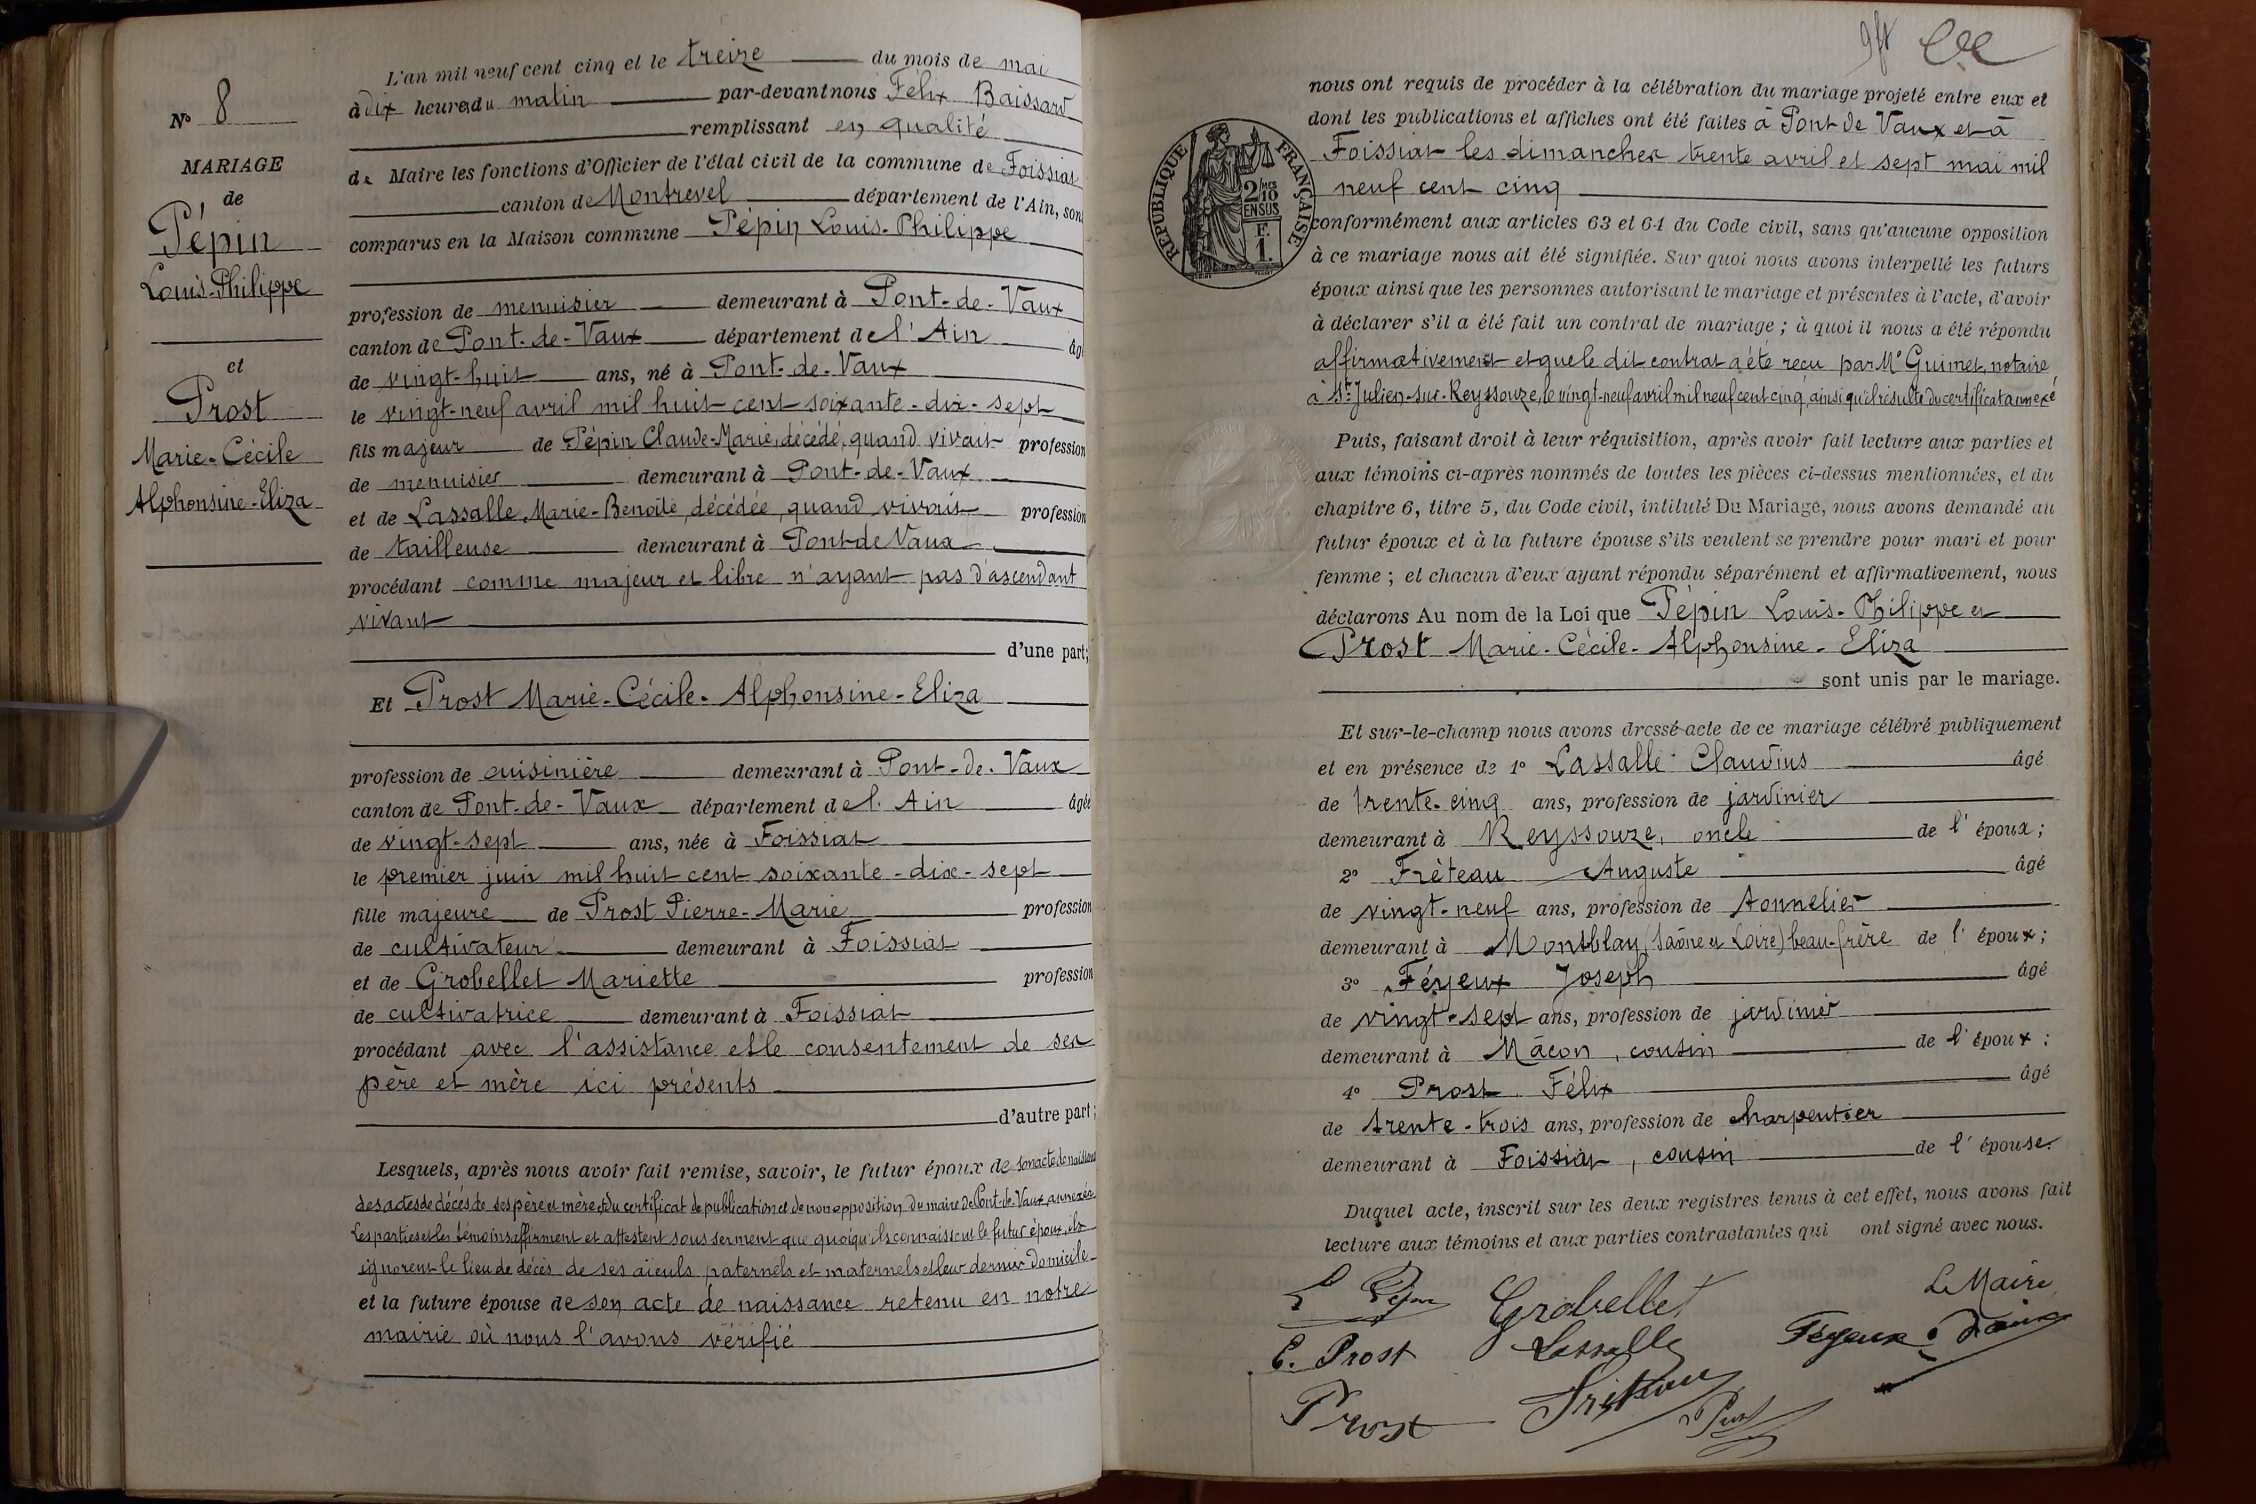 N° 8
MARIAGE
de
Pépin
Louis-Philippe
et
Prost
Marie-Cécile
Alphonsine-Eliza
L'an mil neuf cent cinq et le treize du mois de mai
à dix heures du matin par-devant nous Félix Baissard
remplissant en qualité
de Maire les fonctions d'Officier de l'état civil de la commune de Foissiat
canton de Montrevel département de l'Ain, sont
comparus en la Maison commune Pépin Louis-Philippe
profession de menuisier demeurant à Pont-de-Vaux
canton de Pont-de-Vaux département de l'Ain âgé
de vingt-huit ans, né à Pont-de-Vaux
le vingt-neuf avril mil huit cent soixante-dix-sept
fils majeur de Pépin Claude-Marie, décédé, quand vivait profession
de menuisier demeurant à Pont-de-Vaux
et de Lassalle, Marie-Benoîte, décédée, quand vivait profession
de tailleuse demeurant à Pont de Vaux
procédant comme majeur et libre n'ayant pas d'ascendant
vivant
d'une part;
Et Prost Marie-Cécile-Alphonsine-Eliza
profession de cuisinière demeurant à Pont-de-Vaux
canton de Pont-de-Vaux département de l'Ain âgée
de vingt-sept ans, née à Foissiat
le premier juin mil huit cent soixante-dix-sept
fille majeure de Prost Pierre-Marie profession
de cultivateur demeurant à Foissiat
et de Grobellet Mariette profession
de cultivatrice demeurant à Foissiat
procédant avec l'assistance et le consentement de ses
père et mère ici présents
d'autre part;
Lesquels, après nous avoir fait remise, savoir, le futur époux de son acte de naissance
des actes de décès de ses père et mère et du certificat de publication et de non opposition du maire de Pont-de-Vaux, annexés
Les parties et les témoins affirment et attestent sous serment que quoiqu'ils connaissent le futur époux, ils
ignorent le lieu de décès de ses aïeuls paternels et maternels et leur dernier domicile
et la future épouse de son acte de naissance retenu en notre
mairie où nous l'avons vérifié
nous ont requis de procéder à la célébration du mariage projeté entre eux et
dont les publications et affiches ont été faites à Pont de Vaux et à
Foissiat les dimanches trente avril et sept mai mil
neuf cent cinq
RÉPUBLIQUE FRANÇAISE
2/10 MES
EN SUS
F.
1.
conformément aux articles 63 et 64 du Code civil, sans qu'aucune opposition
à ce mariage nous ait été signifiée. Sur quoi nous avons interpellé les futurs
époux ainsi que les personnes autorisant le mariage et présentes à l'acte, d'avoir
à déclarer s'il a été fait un contrat de mariage; à quoi il nous a été répondu
affirmativement et que le dit contrat a été reçu par Me Guimet, notaire
à St Julien-sur-Reyssouze, le vingt-neuf avril mil neuf cent cinq, ainsi qu'il résulte du certificat annexé
Puis, faisant droit à leur réquisition, après avoir fait lecture aux parties et
aux témoins ci-après nommés de toutes les pièces ci-dessus mentionnées, et du
chapitre 6, titre 5, du Code civil, intitulé Du Mariage, nous avons demandé au
futur époux et à la future épouse s'ils veulent se prendre pour mari et pour
femme; et chacun d'eux ayant répondu séparément et affirmativement, nous
déclarons Au nom de la Loi que Pépin Louis-Philippe et
Prost Marie-Cécile-Alphonsine-Eliza
sont unis par le mariage.
Et sur-le-champ nous avons dressé acte de ce mariage célébré publiquement
et en présence de 1° Lassalle Claudius âgé
de trente-cinq ans, profession de jardinier
demeurant à Reyssouze, oncle de l'époux;
2° Frèteau Auguste âgé
de vingt-neuf ans, profession de tonnelier
demeurant à Montblay (Saône et Loire) beau-frère de l'époux;
3° Féyeux Joseph âgé
de vingt-sept ans, profession de jardinier
demeurant à Mâcon, cousin de l'époux;
4° Prost Félix âgé
de trente-trois ans, profession de charpentier
demeurant à Foissiat, cousin de l'épouse.
Duquel acte, inscrit sur les deux registres tenus à cet effet, nous avons fait
lecture aux témoins et aux parties contractantes qui ont signé avec nous.
L Pépin Grobellet Le Maire,
C. Prost Lassalle Féyeux
Prost